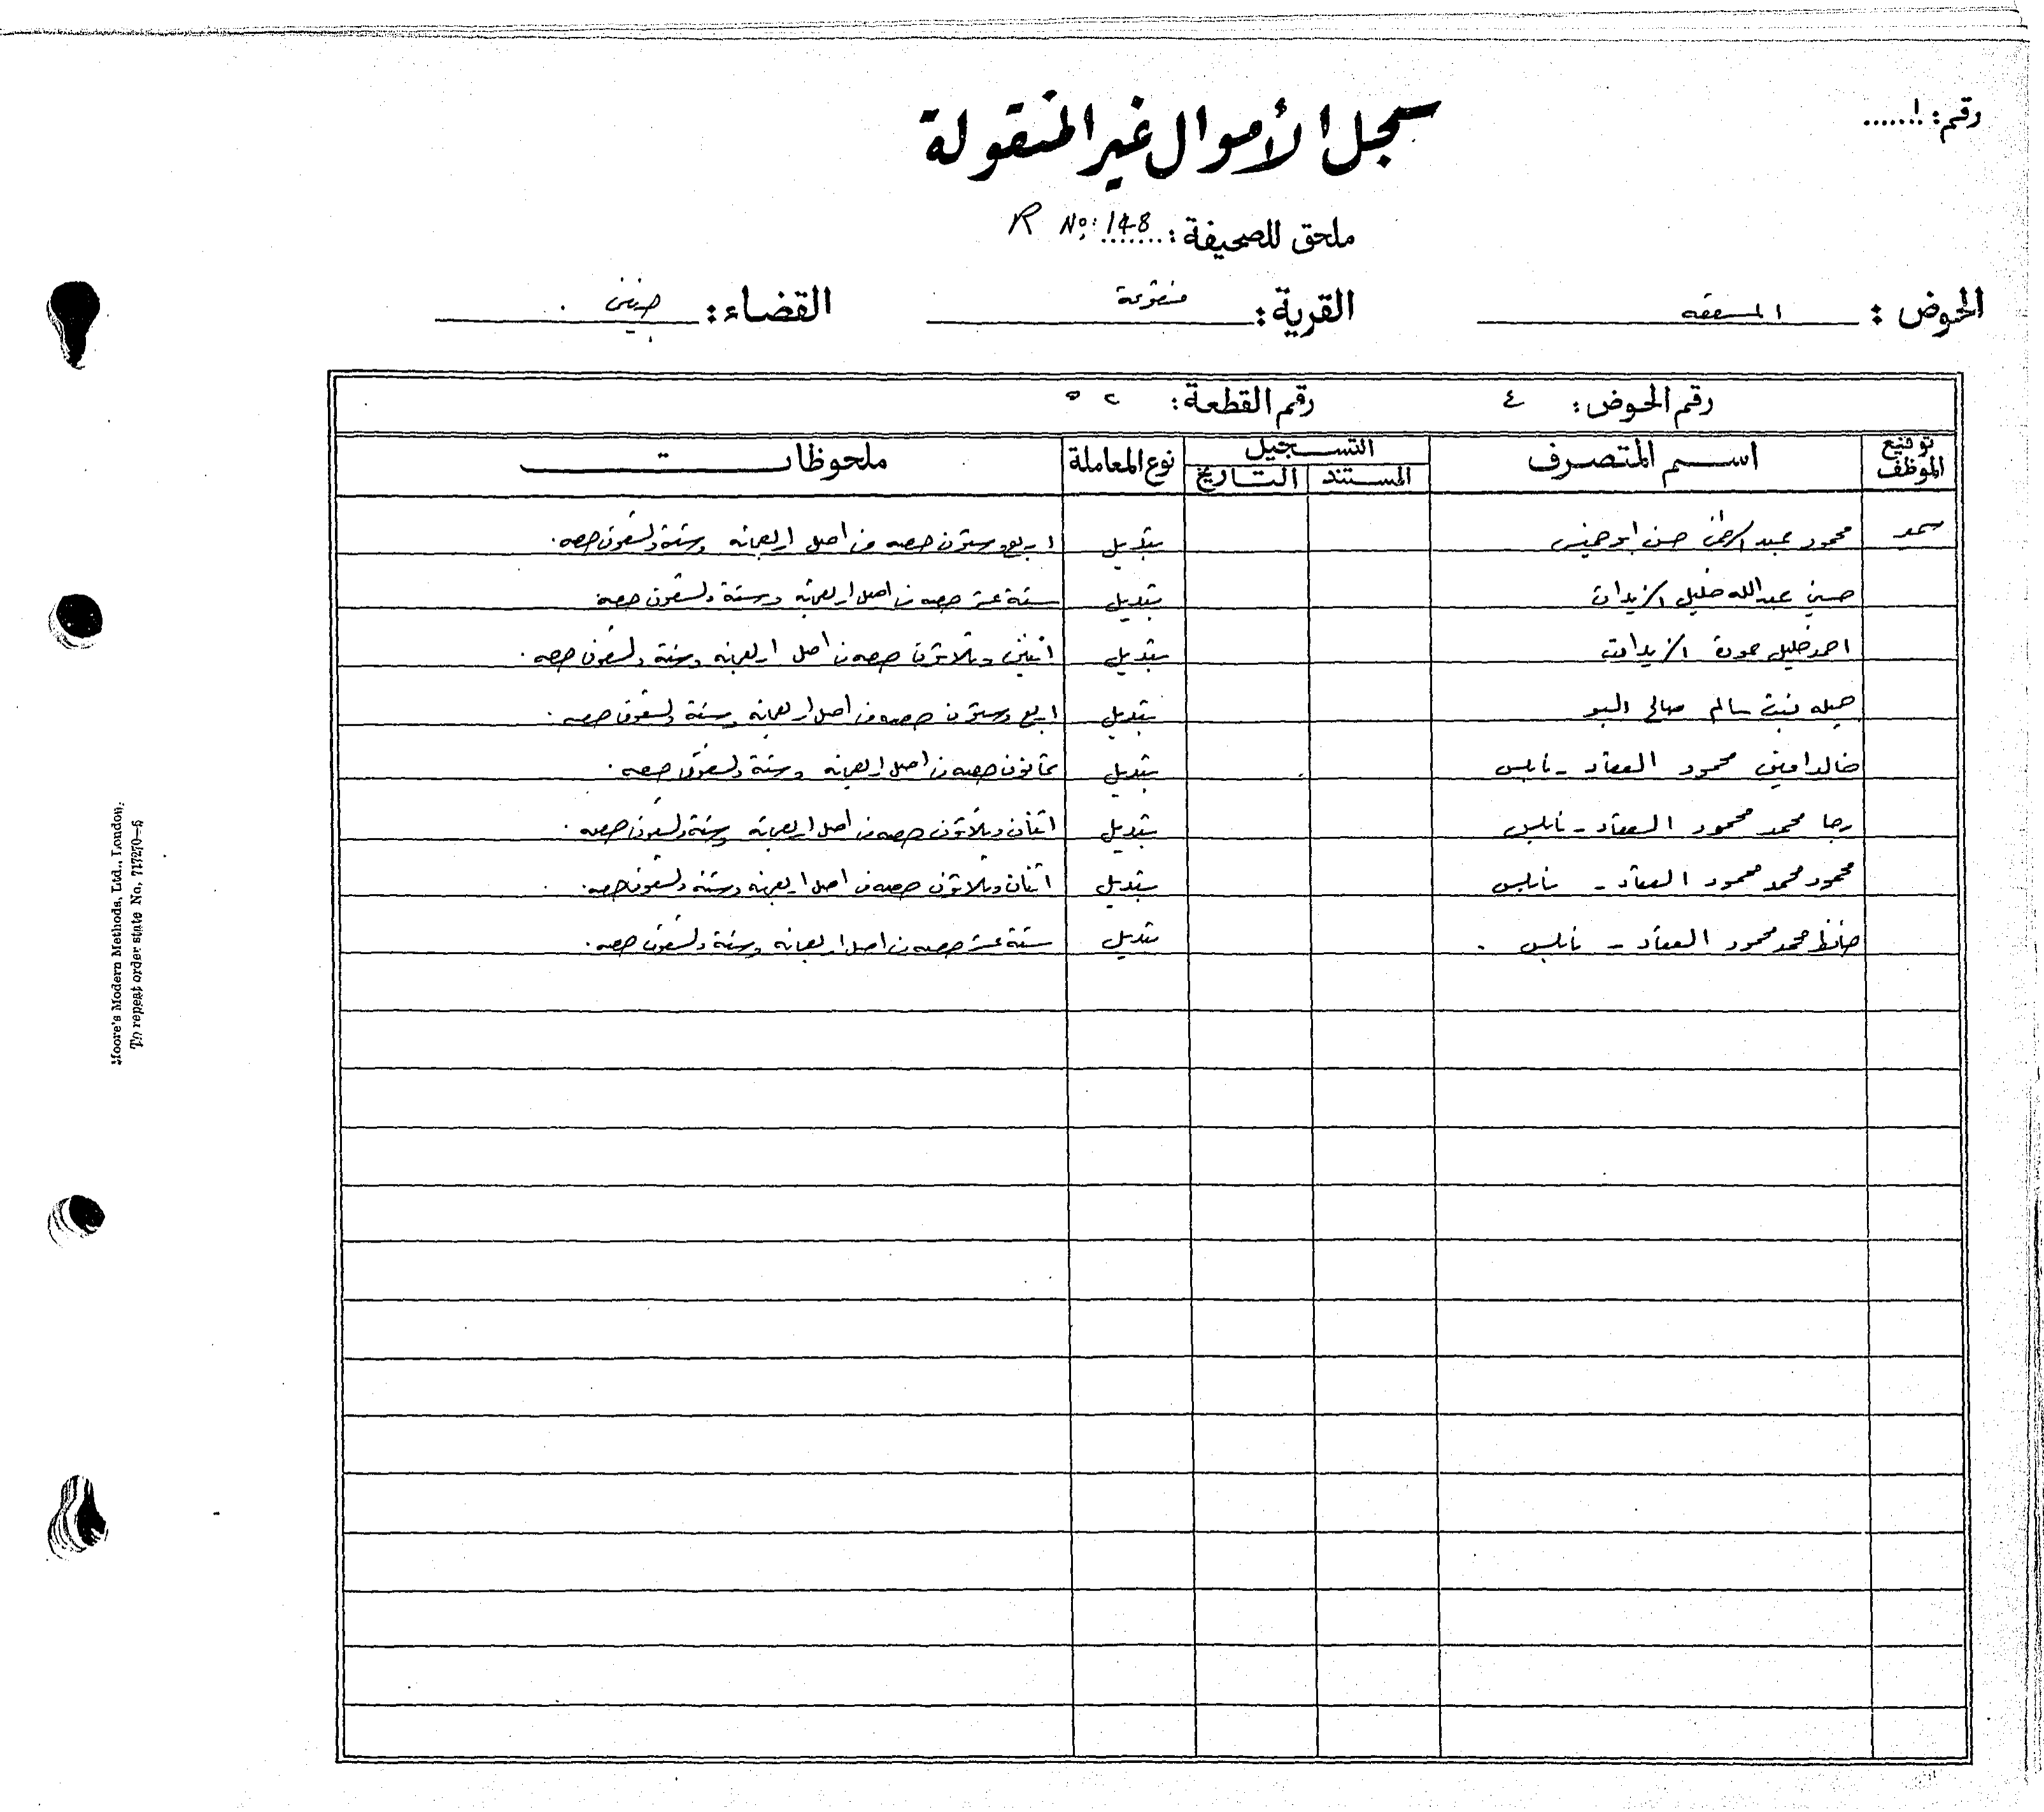 رقم: ١
سجل الأموال غير المنقولة
ملحق للصحيفة: R No: 148
الحوض: المسقفه القرية: القضاء: جنين
رقم الحوض: ٤ رقم القطعة: ٢٥
توقيع الموظف اسم المتصرف التسجيل المستند التاريخ نوع المعاملة ملحوظات
محمود عبد الرحمن حسن ابو خميس تبديل اربع وستون حصه من اصل اربعمائه وستة وتسعون حصه.
حسني عبدالله خليل الزيدات تبديل ستة عشر حصه من اصل اربعمائه وستة وتسعون حصه
احمد خليل عودة الزيدات تبديل اثنين وثلاثون حصه من اصل اربعمائه وستة وتسعون حصه.
بنت سالم صالح تبديل اربع وستون حصه من اصل اربعمائه وستة وتسعون حصه.
خالد امين محمود العقاد - نابلس تبديل ثمانون حصه من اصل اربعمائه وستة وتسعون حصه.
رجا محمد محمود العقاد - نابلس تبديل اثنان وثلاثون حصه من اصل اربعمائه وستة وتسعون حصه.
محمود محمد محمود العقاد - نابلس تبديل اثنان وثلاثون حصه من اصل اربعمائه وستة وتسعون حصه.
حافظ محمد محمود العقاد - نابلس. تبديل ستة عشر حصه من اصل اربعمائه وستة وتسعون حصه.
Moore's Modern Methods, Ltd., London.
To repeat order state No. 717270—S